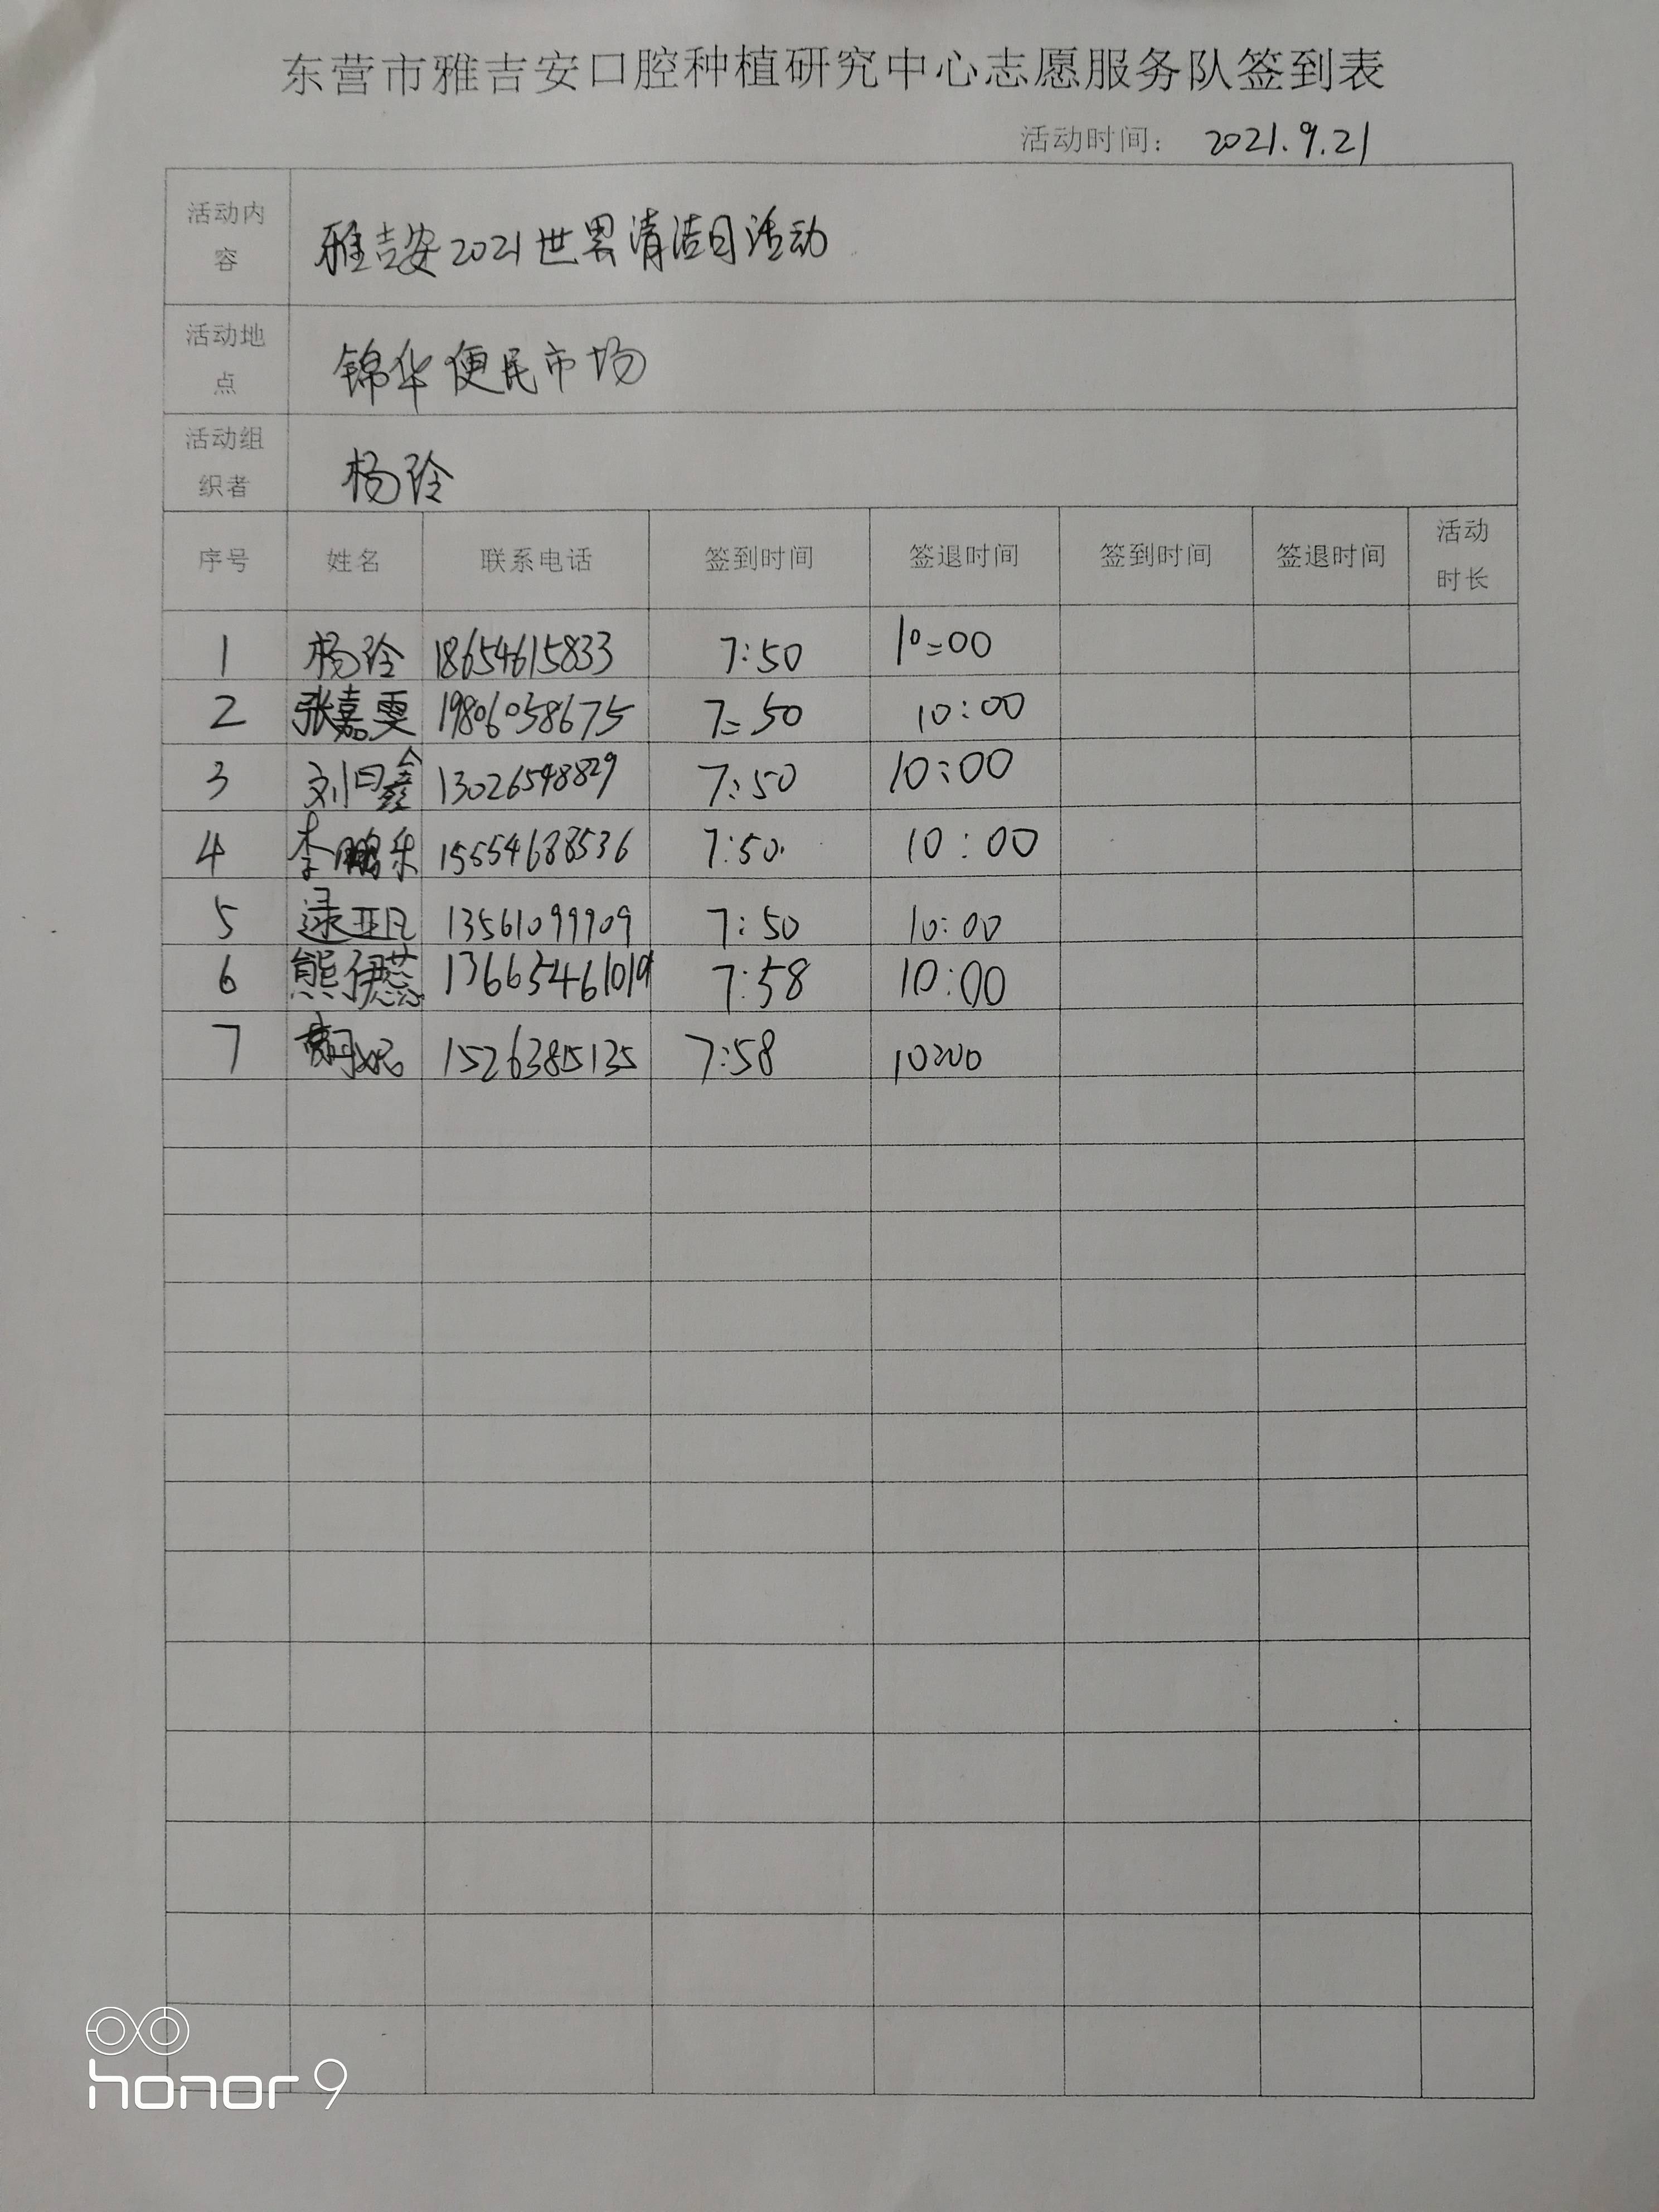 东营市雅吉安口腔种植研究中心志愿服务队签到表
活动时间： 2021.9.21
活动内容 雅吉安2021世界清洁日活动
活动地点 锦华便民市场
活动组织者 杨玲
序号 姓名 联系电话 签到时间 签退时间 签到时间 签退时间 活动时长
1 杨玲 18654615833 7:50 10:00
2 张嘉雯 19806058675 7:50 10:00
3 刘日鑫 13026548829 7:50 10:00
4 李鹏乐 15554688536 7:50 10:00
5 逯亚凡 13561099909 7:50 10:00
6 熊伊蕊 13665461019 7:58 10:00
7 15263815135 7:58 10:00
honor 9